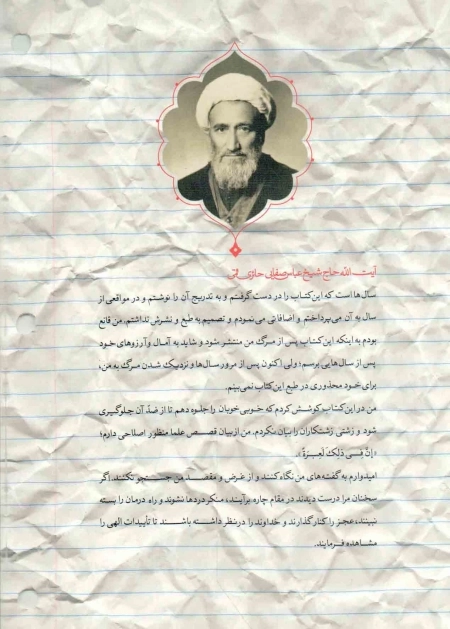 آیت الله حاج شیخ عباس صفایی حائری قمی
سال‌ها است که این کتاب را در دست گرفتم و به تدریج آن را نوشتم و در مواقعی از
سال به آن می‌پرداختم و اضافاتی می‌نمودم و تصمیم به طبع و نشرش نداشتم. من قانع
بودم به اینکه این کتاب پس از مرگ من منتشر شود و شاید به آمال و آرزوهای خود
پس از سال‌هایی برسم؛ ولی اکنون پس از مرور سال‌ها و نزدیک شدن مرگ به من،
برای خود محذوری در طبع این کتاب نمی‌بینم.
من در این کتاب کوشش کردم که خوبی خوبان را جلوه دهم تا از ضدّ آن جلوگیری
شود و زشتی زشتکاران را بیان نکردم. من از بیان قصص علما منظور اصلاحی دارم؛
«إنَّ فِــی ذلِکَ لَعِبرَةً».
امیدوارم به گفته‌های من نگاه کنند و از غرض و مقصد من جستجو نکنند. اگر
سخنان مرا درست دیدند در مقام چاره برآیند، منکر دردها نشوند و راه درمان را بسته
نبینند، عجز را کنار گذارند و خداوند را در نظر داشته باشند تا تأییدات الهی را
مشاهده فرمایند.